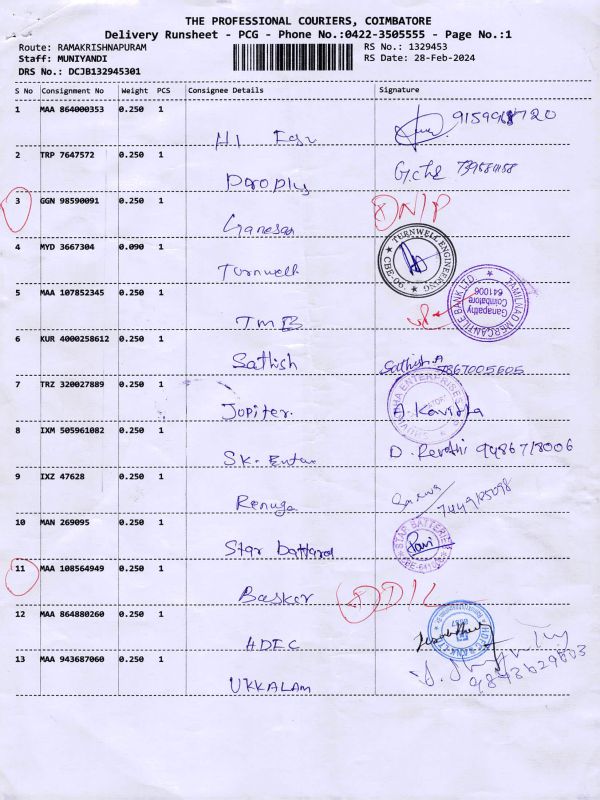 THE PROFESSIONAL COURIERS, COIMBATORE
Delivery Runsheet - PCG - Phone No.:0422-3505555 - Page No.:1
Route: RAMAKRISHNAPURAM
RS No.: 1329453
Staff: MUNIYANDI
RS Date: 28-Feb-2024
DRS No.: DCJB132945301
S No Consignment No Weight PCS Consignee Details Signature
1 MAA 864000353 0.250 1
2 TRP 7647572 0.250 1
3 GGN 98590091 0.250 1 Ganesan
4 MYD 3667304 0.090 1 Turnwell
TURNWELL ENGINEERING
CBE-06
5 MAA 107852345 0.250 1 TMB
TAMILNAD MERCANTILE BANK LTD.
Ganapathy
Coimbatore
641006
6 KUR 4000258612 0.250 1 Sathish Sathish.A
7 TRZ 320027889 0.250 1 Jupiter. A. Kavitha
8 IXM 505961082 0.250 1 D. Revathi
9 IXZ 47628 0.250 1 Renuga
10 MAN 269095 0.250 1 Star
STAR BATTERIES
11 MAA 108564949 0.250 1 Basker DIL
12 MAA 864880260 0.250 1
13 MAA 943687060 0.250 1 UKKALAM